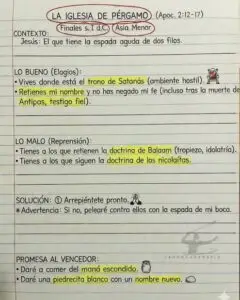 LA IGLESIA DE PÉRGAMO (Apoc. 2:12-17)
Finales s. I d.C Asia Menor
CONTEXTO:
Jesús: El que tiene la espada aguda de dos filos.
LO BUENO (Elogios):
• Vives donde está el trono de Satanás (ambiente hostil).
• Retienes mi nombre y no has negado mi fe (incluso tras la muerte de
Antipas, testigo fiel).
LO MALO (Reprensión):
• Tienes a los que retienen la doctrina de Balaam (tropiezo, idolatría).
• Tienes a los que siguen la doctrina de los nicolaítas.
SOLUCIÓN: ① Arrepiéntete pronto.
* Advertencia: Si no, pelearé contra ellos con la espada de mi boca.
PROMESA AL VENCEDOR:
• Daré a comer del maná escondido.
• Daré una piedrecita blanca con un nombre nuevo.